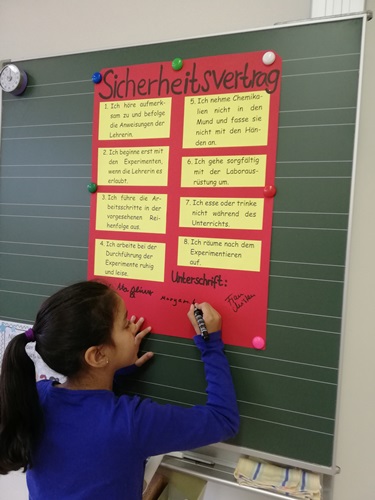 Sicherheitsvertrag
1. Ich höre aufmerk-
sam zu und befolge
die Anweisungen der
Lehrerin.
2. Ich beginne erst mit
den Experimenten,
wenn die Lehrerin es
erlaubt.
3. Ich führe die Ar-
beitsschritte in der
vorgesehenen Rei-
henfolge aus.
4. Ich arbeite bei der
Durchführung der
Experimente ruhig
und leise.
5. Ich nehme Chemika-
lien nicht in den
Mund und fasse sie
nicht mit den Hän-
den an.
6. Ich gehe sorgfältig
mit der Laboraus-
rüstung um.
7. Ich esse oder trinke
nicht während des
Unterrichts.
8. Ich räume nach dem
Experimentieren
auf.
Unterschrift:
Frau